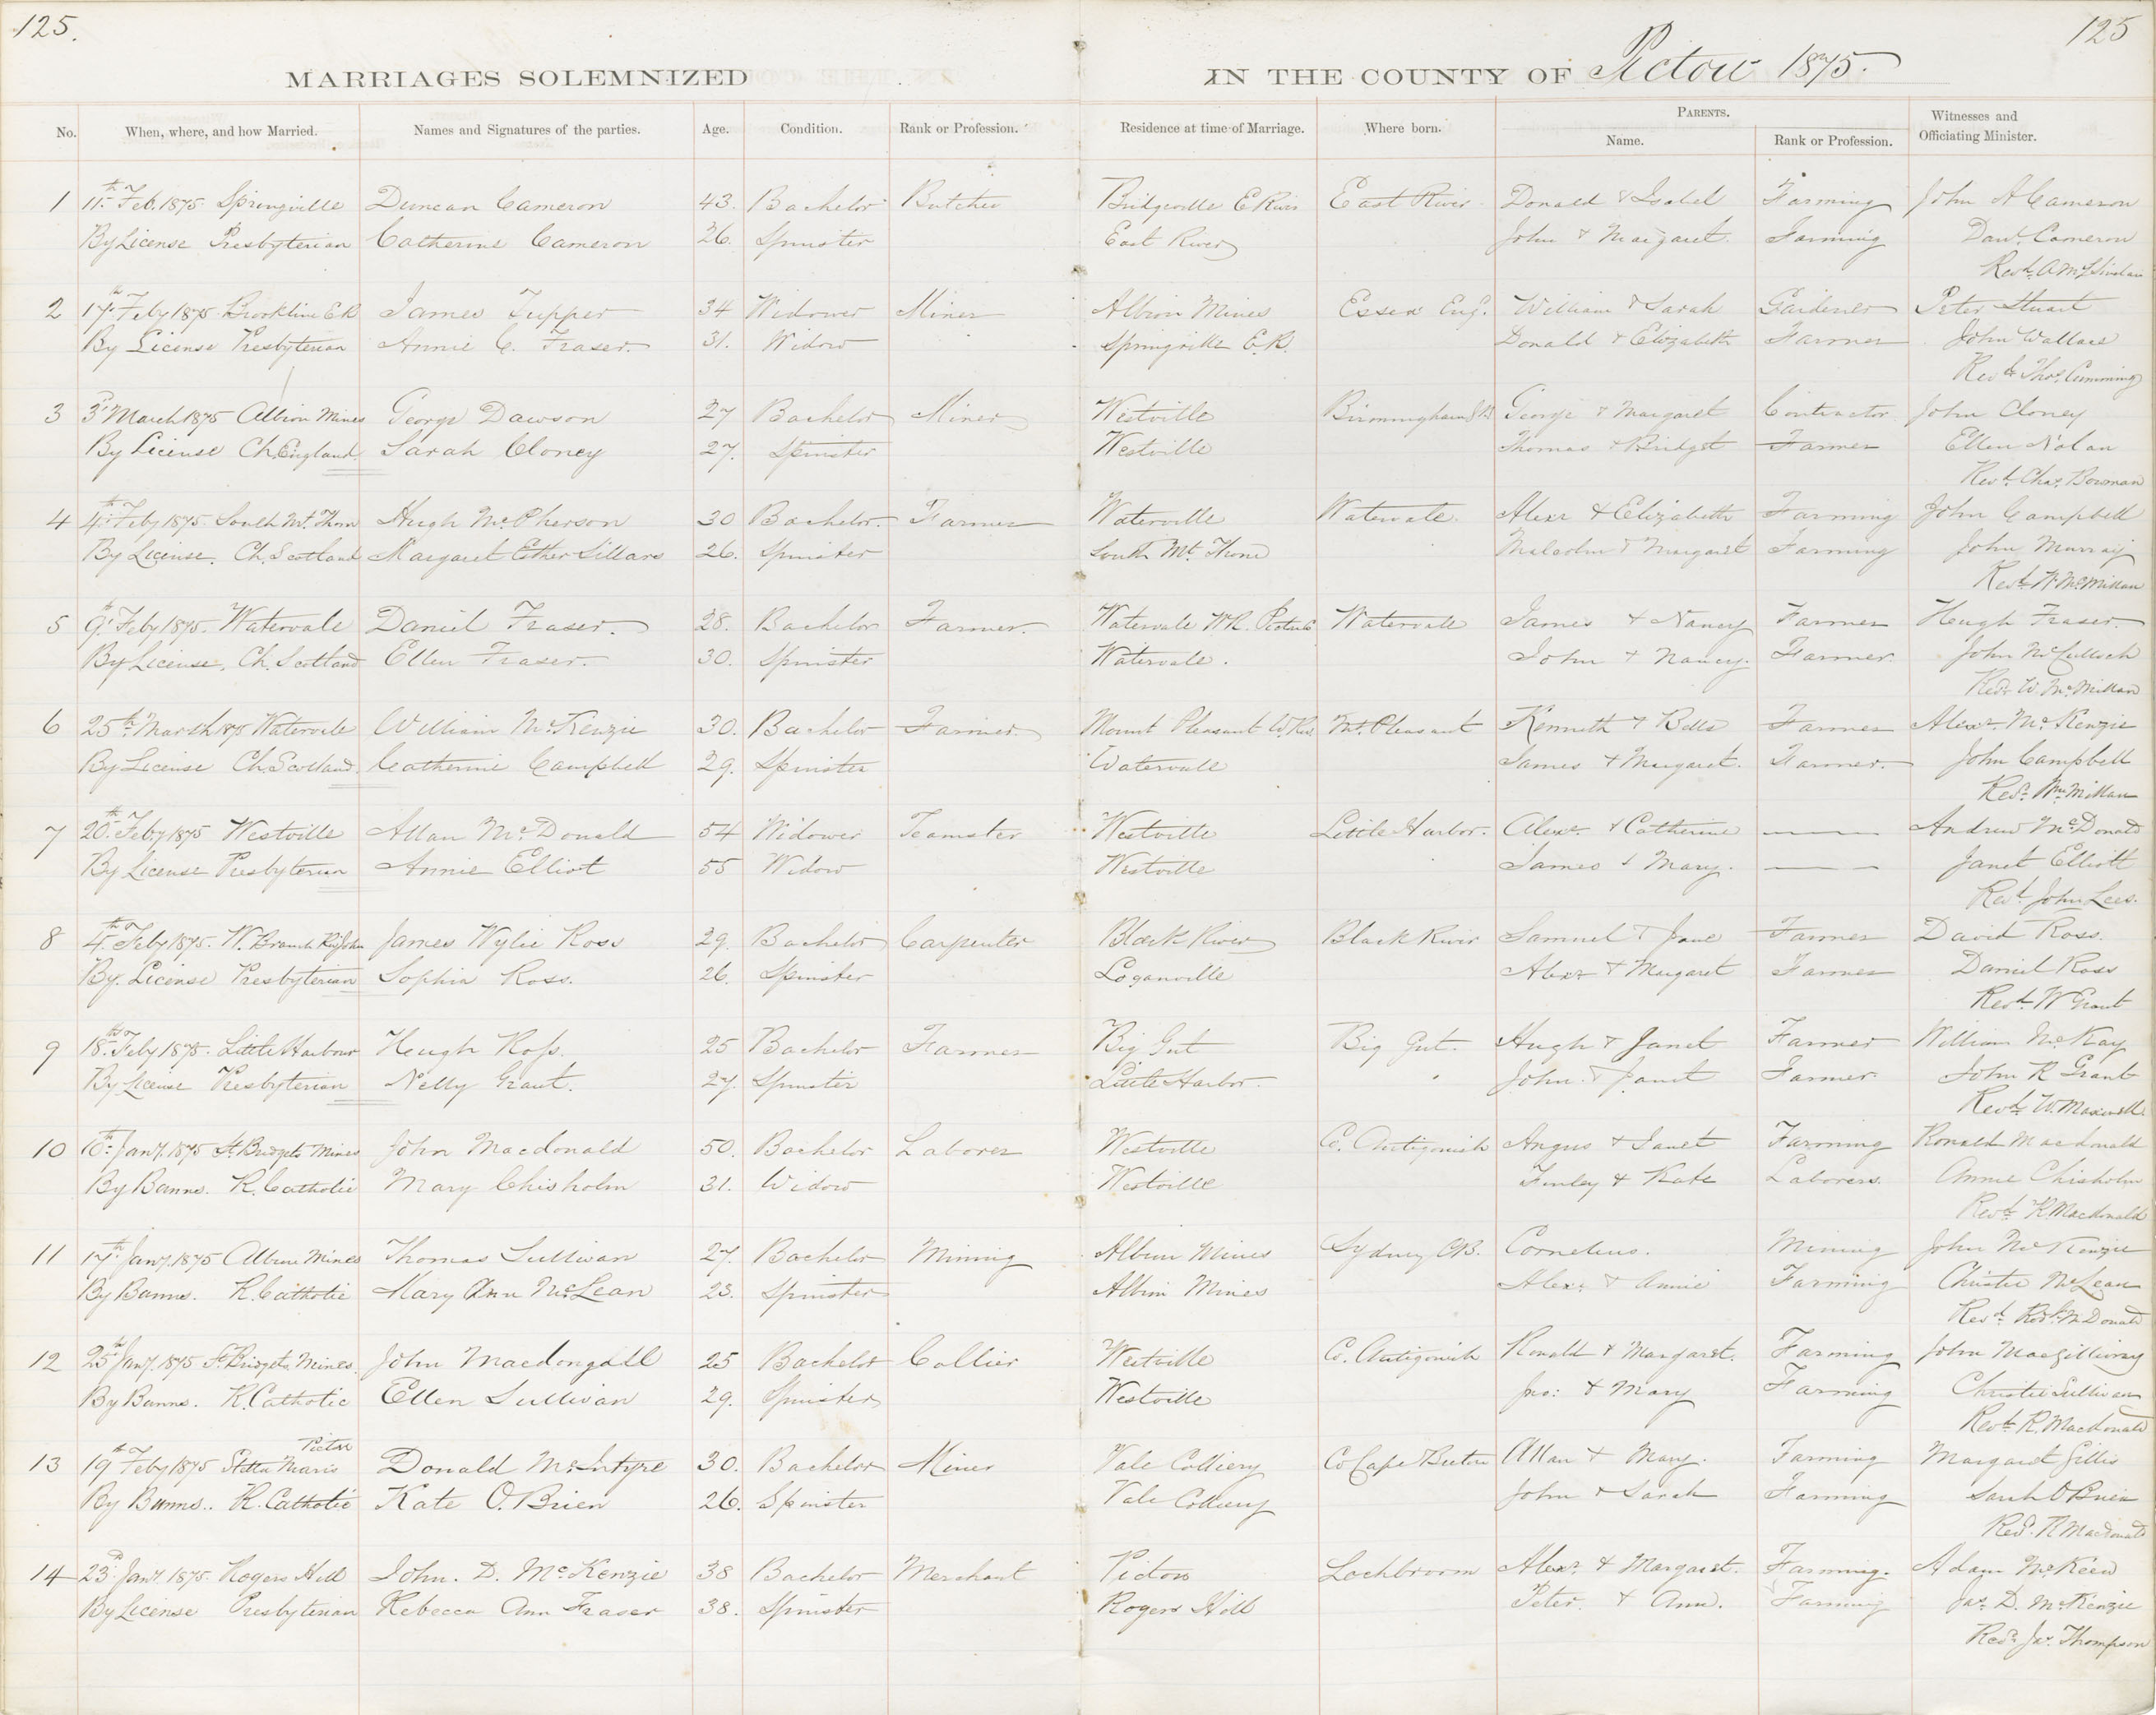 125.
125
MARRIAGES SOLEMNIZED IN THE COUNTY OF Pictou 1875.
No. When, where, and how Married. Names and Signatures of the parties. Age. Condition. Rank or Profession. Residence at time of Marriage. Where born. PARENTS. Name. Rank or Profession. Witnesses and Officiating Minister.
1 11th Feb. 1875. Springville Duncan Cameron 43. Bachelor Butcher Bridgeville E River East River Donald & Isabel Farming John A Cameron
By License Presbyterian Catherine Cameron 26. Spinster East River John & Margaret. Farming Danl. Cameron
Revd. A McL Sinclair
2 17th Feby 1875. Brookline ER James Tupper 34 Widower Miner Albion Mines Essex Eng. William & Sarah Gardener Peter Stuart
By License Presbyterian Annie C. Fraser. 31. Widow Springville E.R. Donald & Elizabeth Farmer John Wallace
Revd. Thos. Cumming
3 3d March 1875 Albion Mines George Dawson 27 Bachelor Miner Westville Birmingham George & Margaret Contractor John Cloney
By License Ch. England Sarah Cloney 27. Spinster Westville Thomas & Bridget Farmer Ellen Nolan
Revd. Chas. Bowman
4 4th Feby 1875. South Mt. Thom Hugh McPherson 30 Bachelor. Farmer Waterville Watervale. Alexr & Elizabeth Farming John Campbell
By License. Ch. Scotland Margaret Esther Sillars 26. Spinster South Mt. Thom Malcolm & Margaret Farming John Murray
Revd. W. McMillan
5 9th Feby 1875. Watervale Daniel Fraser. 28. Bachelor Farmer. Watervale W.R. Pictou Co Watervale James & Nancy Farmer Hugh Fraser.
By License, Ch. Scotland Ellen Fraser. 30. Spinster Watervale. John & Nancy. Farmer. John McCulloch
Revd. W. McMillan
6 25th March 1875 Watervale William McKenzie 30. Bachelor Farmer. Mount Pleasant W. Riv. Mt. Pleasant Kenneth & Bella Farmer Alexr. McKenzie
By License Ch. Scotland. Catherine Campbell 29. Spinster Watervale James & Margaret. Farmer. John Campbell
Revd. Wm McMillan
7 20th Feby 1875 Westville Allan McDonald 54 Widower Teamster Westville Little Harbor. Alexr. & Catherine ——— Andrew McDonald
By License Presbyterian Annie Elliot 55 Widow Westville James & Mary. ——— Janet Elliott
Revd. John Lees.
8 4th Feby 1875. W. Branch Riv John James Wylie Ross 29. Bachelor Carpenter Black River Black River Samuel & Jane Farmer David Ross.
By. License Presbyterian Sophia Ross. 26. Spinster Loganville Alexr & Margaret Farmer Daniel Ross
Revd. W Grant
9 18th Feby 1875. Little Harbour Hugh Ross. 25 Bachelor Farmer Big Gut Big Gut. Hugh & Janet Farmer William McKay
By License Presbyterian Nelly Grant. 27. Spinster Little Harbor. John & Janet Farmer. John R Grant
Revd. W. Maxwell
10 10th Jany. 1875 St Bridgets Mines John Macdonald 50. Bachelor Laborer Westville Co. Antigonish Angus & Janet Farming Ronald Macdonald
By Banns. R. Catholic Mary Chisholm 31. Widow Westville Finley & Kate Laborers. Annie Chisholm
Revd. R Macdonald
11 17th Jany. 1875 Albion Mines Thomas Sullivan 27. Bachelor Mining Albion Mines Sydney CB. Cornelius. Mining John McKenzie
By Banns. R. Catholic Mary Ann McLean 23. Spinster Albion Mines Alexr. & Annie Farming Christie McLean
Revd. Rodk. McDonald
12 25th Jany. 1875 St Bridgets Mines. John Macdongall 25 Bachelor Collier Westville Co. Antigonish Ronald & Margaret. Farming John MacGillivray
By Banns. R. Catholic Ellen Sullivan 29. Spinster Westville Jno: & Mary Farming Christie Sullivan
Revd. R. Macdonald
Pictou
13 19th Feby 1875 Stella Maris Donald McIntyre 30. Bachelor Miner Vale Colliery Co Cape Breton Allan & Mary. Farming Margaret Gillis
By Banns.. R. Catholic Kate O. Brien 26. Spinster Vale Colliery John & Sarah Farming Sarah O Brien
Revd. R Macdonald
14 23d. Jany 1875. Rogers Hill John. D. McKenzie 38 Bachelor Merchant Pictou Lochbroom Alexr. & Margaret. Farming. Adam McKeen
By License Presbyterian Rebecca Ann Fraser 38. Spinster Rogers Hill Peter. & Ann. Farming Jas. D. McKenzie
Revd. Jas. Thompson